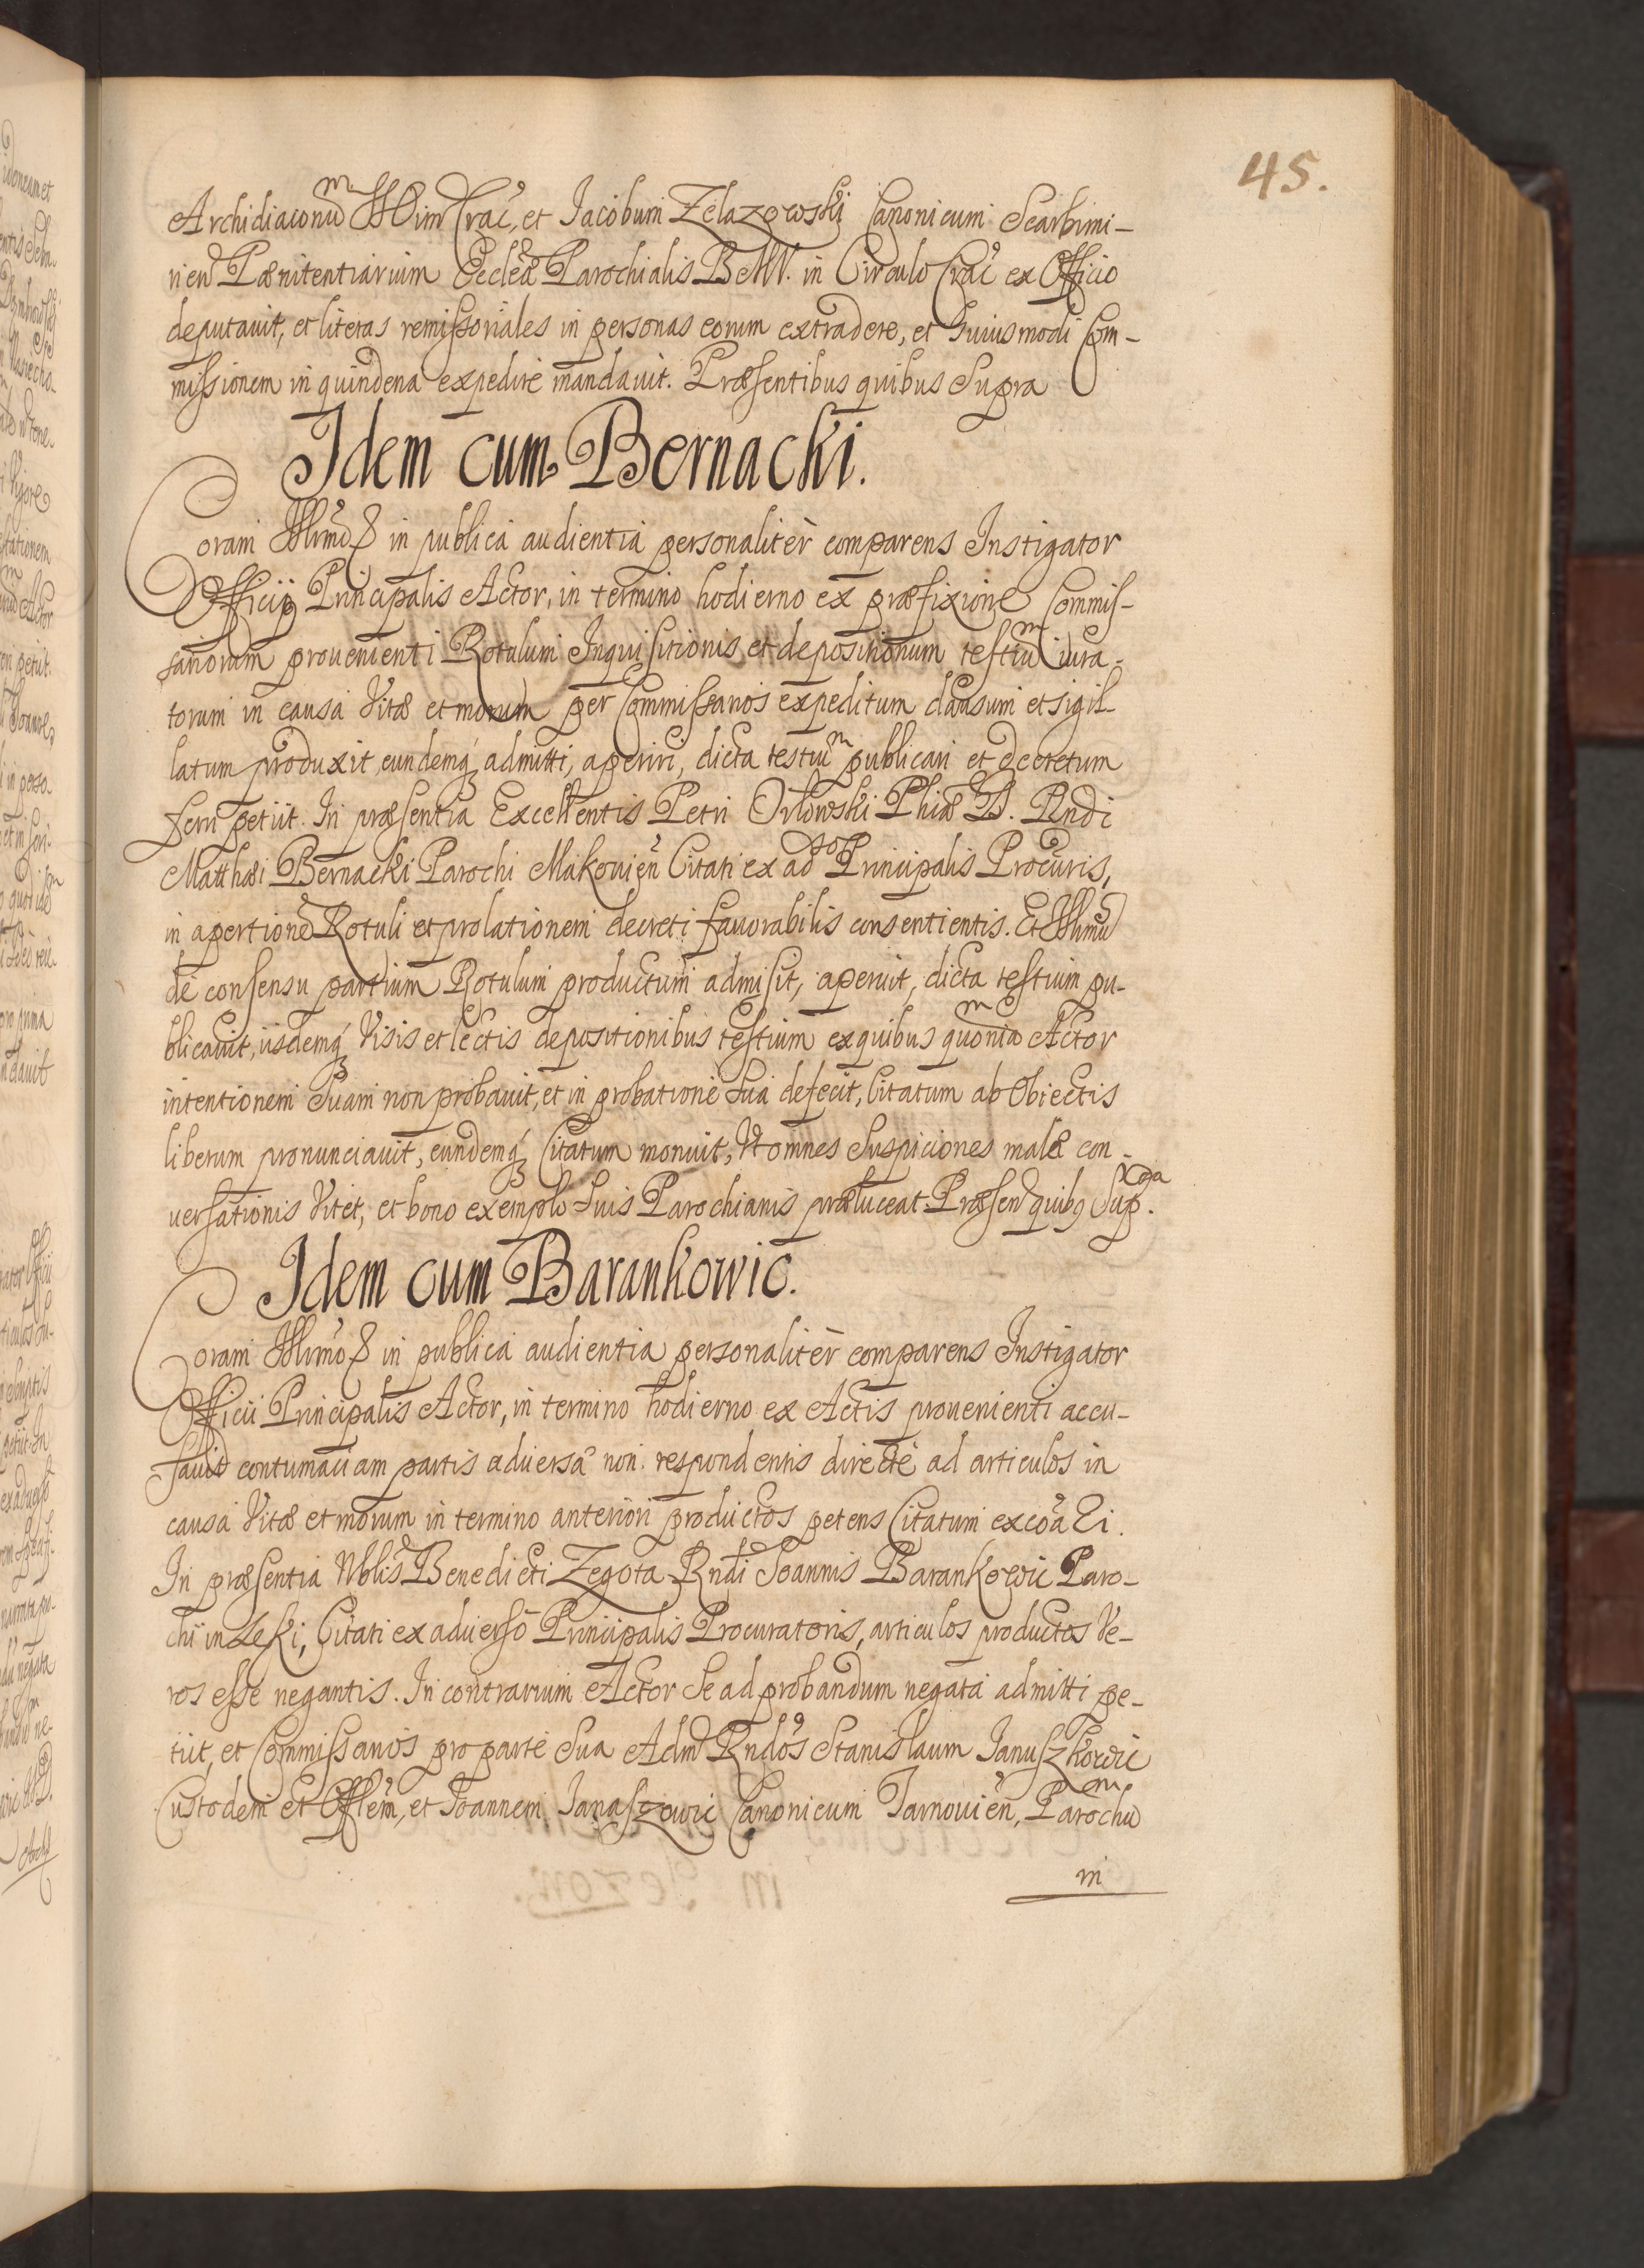 45.
Archidiaconū Crac, et Jacobum Zelazowski Canonicum Scarbimi-
rien Pænitentiarium Eccleæ Parochialis BMV. in Circulo Crac ex Officio
deputauit, et literas remissoriales in personas eorum extradere, et huiusmodi Com-
missionem in quindena expedire mandauit. Præsentibus quibus Supra
Idem cum Bernacki.
Coram Illmo &c in publica audientia personaliter comparens Instigator
Officij Principalis Actor, in termino hodierno ex præfixione Commis-
sariorum prouenienti Rotulum Inquisitionis et depositionum testium iura-
torum in causa Vitæ et morum per Commissarios expeditum clausum et sigil-
latum produxit, eundemq admitti, aperiri, dicta testium publicari et decretum
ferri petijt. In præsentia Excellentis Petri Orlowski Phiæ D. Rndi
Matthæi Bernacki Parochi Makouien Citati ex adso Principalis Procuris,
in apertionē Rotuli et prolationem decreti fauorabilis consentientis. Et Illmus
de consensu partium Rotulum productum admisit, aperuit, dicta testium pu-
blicauit, iisdemq Visis et lectis depositionibus testium ex quibus quoniam Actor
intentionem Suam non probauit, et in probatione Sua defecit, Citatum ab Obiectis
liberum pronunciauit, eundemq Citatum monuit, Vt omnes Suspiciones malæ con-
uersationis Vitet, et bono exemplo Suis Parochianis præluceat. Præsen quibq Sup.
Idem cum Barankowic.
Coram Illmo &c in publica audientia personaliter comparens Instigator
Officii Principalis Actor, in termino hodierno ex Actis prouenienti accu-
sauit contumaciam partis aduersæ non respondentis directe ad articulos in
causa Vitæ et morum in termino anteriori productos petens Citatum excoa Ei.
In præsentia Nblis Benedicti Zegota Rndi Joannis Barankowic Paro-
chi in Leki, Citati ex aduerso Principalis Procuratoris, articulos productos Ve-
ros esse negantis. In contrarium Actor Se ad probandum negata admitti pe-
tijt, et Commissarios pro parte Sua Adm Rndos Stanislaum Januszkowic
Custodem et Offlem, et Joannem Janaszewic Canonicum Tarnouien, Parochū
in